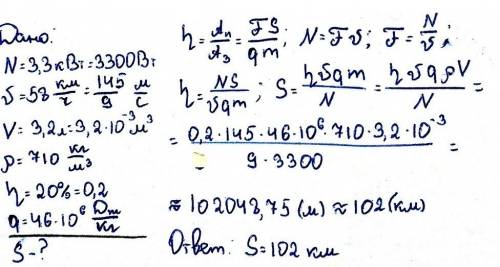 Дано:
N=3,3 кВт=3300Вт
υ=58 км/ч = 145/9 м/с
V=3,2л=3,2·10⁻³м³
ρ=710 кг/м³
η=20%=0,2
q=46·10⁶ Дж/кг
S-?
η = Aп/Aз = FS/qm; N=Fυ; F=N/υ;
η = NS/υqm; S = ηυqm/N = ηυqρV/N =
= 0,2·145·46·10⁶·710·3,2·10⁻³ / 9·3300 =
≈ 102048,75 (м) ≈ 102 (км)
Ответ: S=102 км